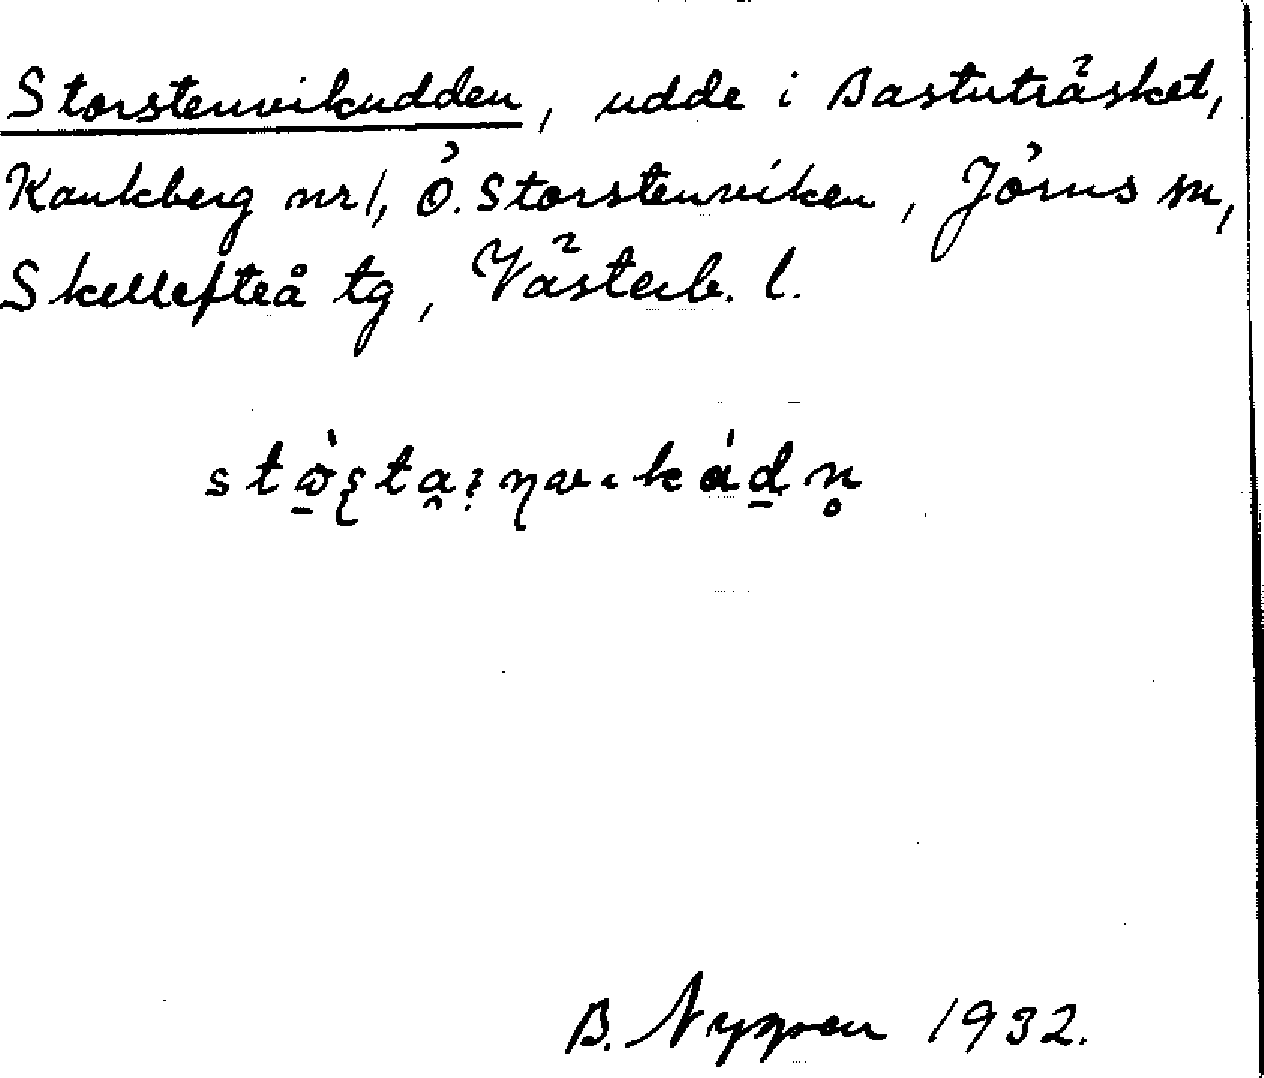 Storstenvikudden, udde i Bastuträsket,
Kankberg nr 1, Ö. Storstenviken, Jörns sn,
Skellefteå tg, Västerb. l.
B. Nygren 1932.